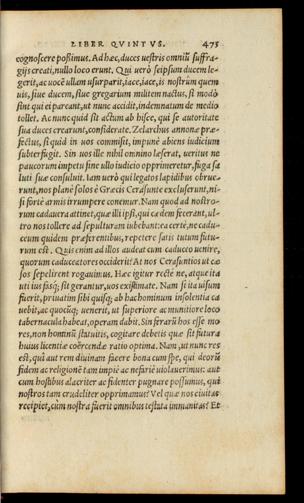 LIBER QVINTVS. 475
cognoscere possimus. Ad hæc, duces uestris omniũ suffra-
gijs creati, nullo loco erunt. Qui uerò seipsum ducem le-
gerit, ac uocẽ ullam usurparit, iace, iace, is nostrũm quem
uis, siue ducem, siue gregarium militem nactus, si modò
sint qui ei pareant, ut nunc accidit, indemnatum de medio
tollet. Ac nunc quid sit actum ab hisce, qui se autoritate
sua duces crearunt, considerate. Zelarchus annonæ præ-
fectus, si quid in uos commisit, impunè abiens iudicium
subterfugit. Sin uos ille nihil omnino læserat, ueritus ne
paucorum impetu sine allo iudicio opprimeretur, fuga sa
luti suæ consuluit. Iam uerò qui legatos lapidibus obrue-
runt, nos planè solos è Græcis Cerasunte excluserunt, ni-
si fortè armis irrumpere conemur. Nam quod ad nostro-
rum cadauera attinet, quæ illi ipsi, qui cædem fecerant, ul-
tro nos tollere ad sepulturam iubebant: ea certè, ne cadu-
ceum quidem præferentibus, repetere satis tutum futu-
rum est. Quis enim ad illos audeat cum caduceo uenire,
quorum caduceatores occiderit? At nos Cerasuntios ut eæ
sos sepelirent rogauimus. Hæc igitur rectè ne, atque ita
uti ius fasq́; sit gerantur, uos existimate. Nam si ita uisum
fuerit, priuatim sibi quisq; ab hac hominum insolentia ca
uebit, ac quocũq; uenerit, ut superiore ac munitiore loco
tabernacula habeat, operam dabit. Sin ferarũ hos esse mo
res, non hominũ statuitis, cogitare debetis quæ sit futura
huius licentiæ coërcendæ ratio optima. Nam, ut nunc res
est, quì aut rem diuinam facere bona cum spe, qui deorũ
fidem ac religionẽ tam impiè ac nefariè uiolauerimus: aut
cum hostibus alacriter ac fidenter pugnare possumus, qui
nostros tam crudeliter opprimamus? Vel quæ nos ciuitas
recipiet, cùm nostra fuerit omnibus testata immanitas? Et